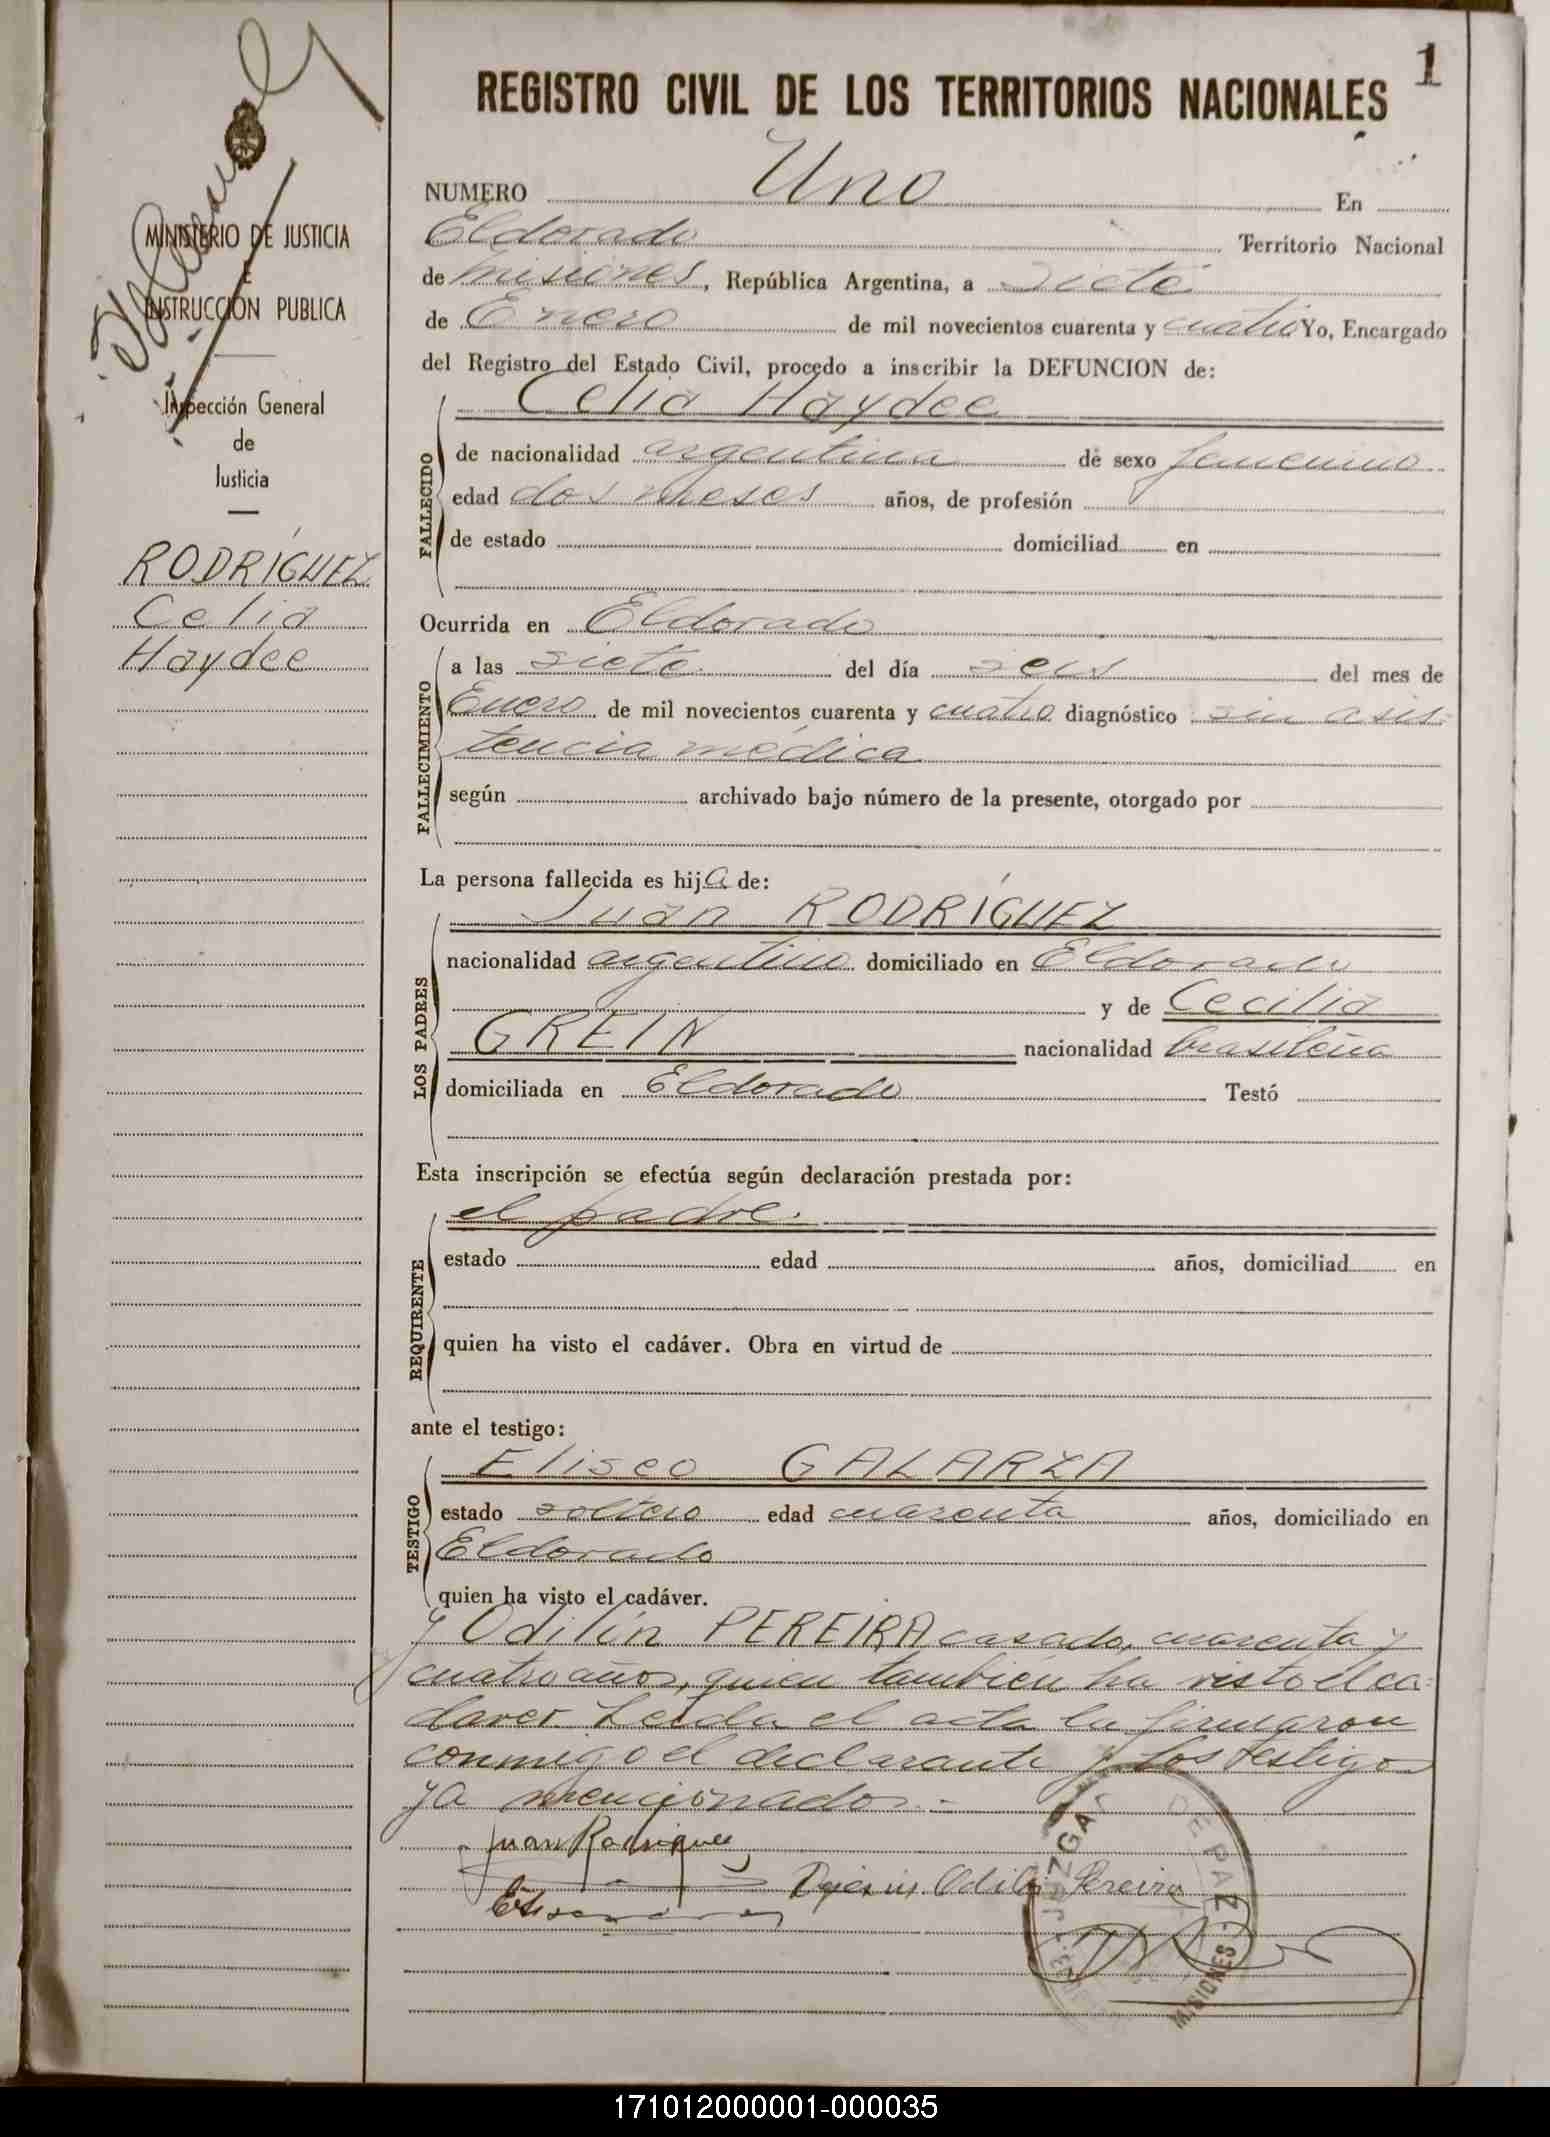 1
REGISTRO CIVIL DE LOS TERRITORIOS NACIONALES
MINISTERIO DE JUSTICIA
E
INSTRUCCIÓN PUBLICA
Inspección General
de
Justicia
RODRÍGUEZ
Celia
Haydee
NUMERO Uno En
Eldorado Territorio Nacional
de Misiones, República Argentina, a siete
de Enero de mil novecientos cuarenta y cuatro Yo, Encargado
del Registro del Estado Civil, procedo a inscribir la DEFUNCION de:
Celia Haydee
FALLECIDO
de nacionalidad argentina de sexo femenino
edad dos meses años, de profesión
de estado domiciliad en
Ocurrida en Eldorado
FALLECIMIENTO
a las siete del día seis del mes de
Enero de mil novecientos cuarenta y cuatro diagnóstico sin asis-
tencia médica
según archivado bajo número de la presente, otorgado por
La persona fallecida es hija de:
LOS PADRES
Juan RODRÍGUEZ
nacionalidad argentino domiciliado en Eldorado
y de Cecilia
GREIN nacionalidad brasileña
domiciliada en Eldorado Testó
Esta inscripción se efectúa según declaración prestada por:
REQUIRENTE
el padre.
estado edad años, domiciliad en
quien ha visto el cadáver. Obra en virtud de
ante el testigo:
TESTIGO
Eliseo GALARZA
estado soltero edad cuarenta años, domiciliado en
Eldorado
quien ha visto el cadáver.
y Odilín PEREIRA casado, cuarenta y
cuatro años, quien también ha visto el ca-
daver. Leida el acta la firmaron
conmigo el declarante y los testigos
ya mencionados.-
Juan Rodriguez
Odilin Pereira
JUZGADO DE PAZ
MISIONES
171012000001-000035